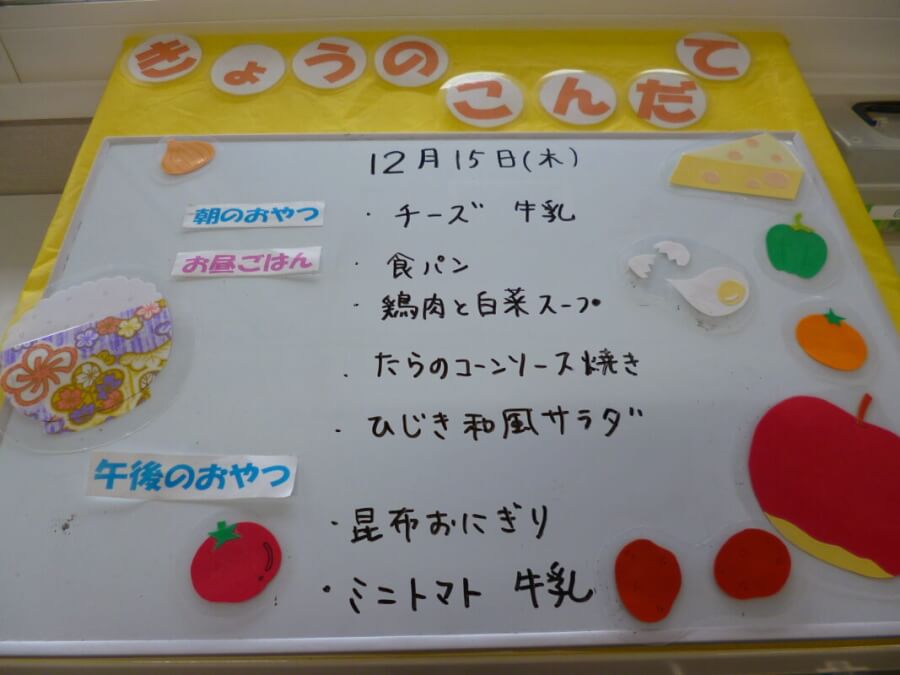 きょうのこんだて
12月15日(木)
朝のおやつ ・チーズ 牛乳
お昼ごはん ・食パン
・鶏肉と白菜スープ
・たらのコーンソース焼き
・ひじき和風サラダ
午後のおやつ
・昆布おにぎり
・ミニトマト 牛乳